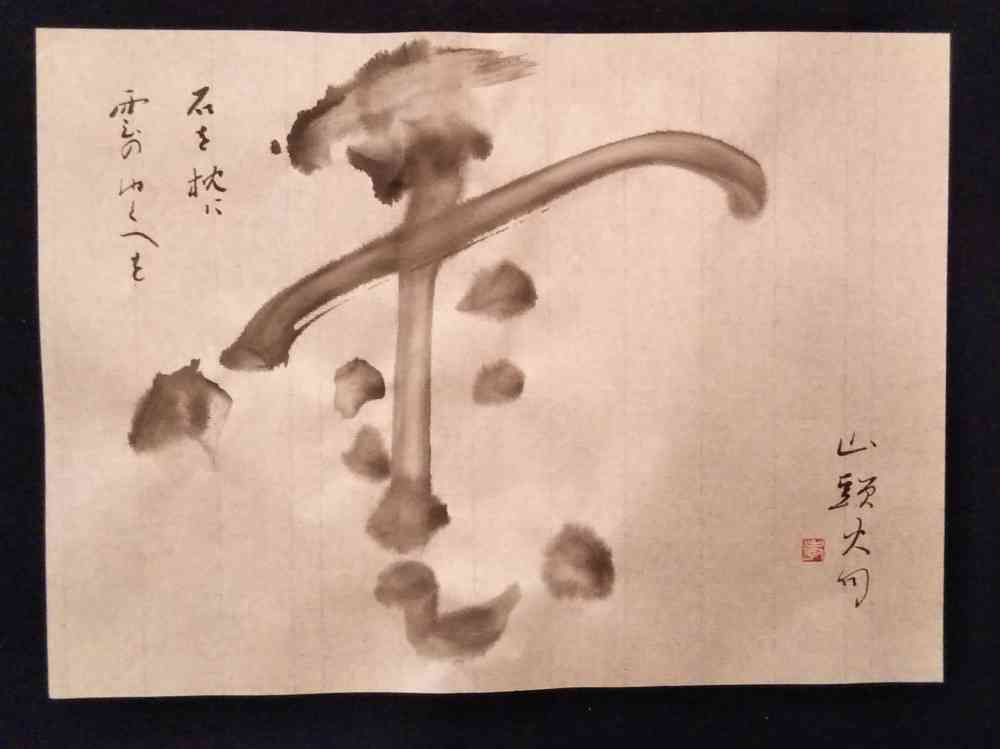 雲
石を枕に
雲のゆくへを
山頭火句